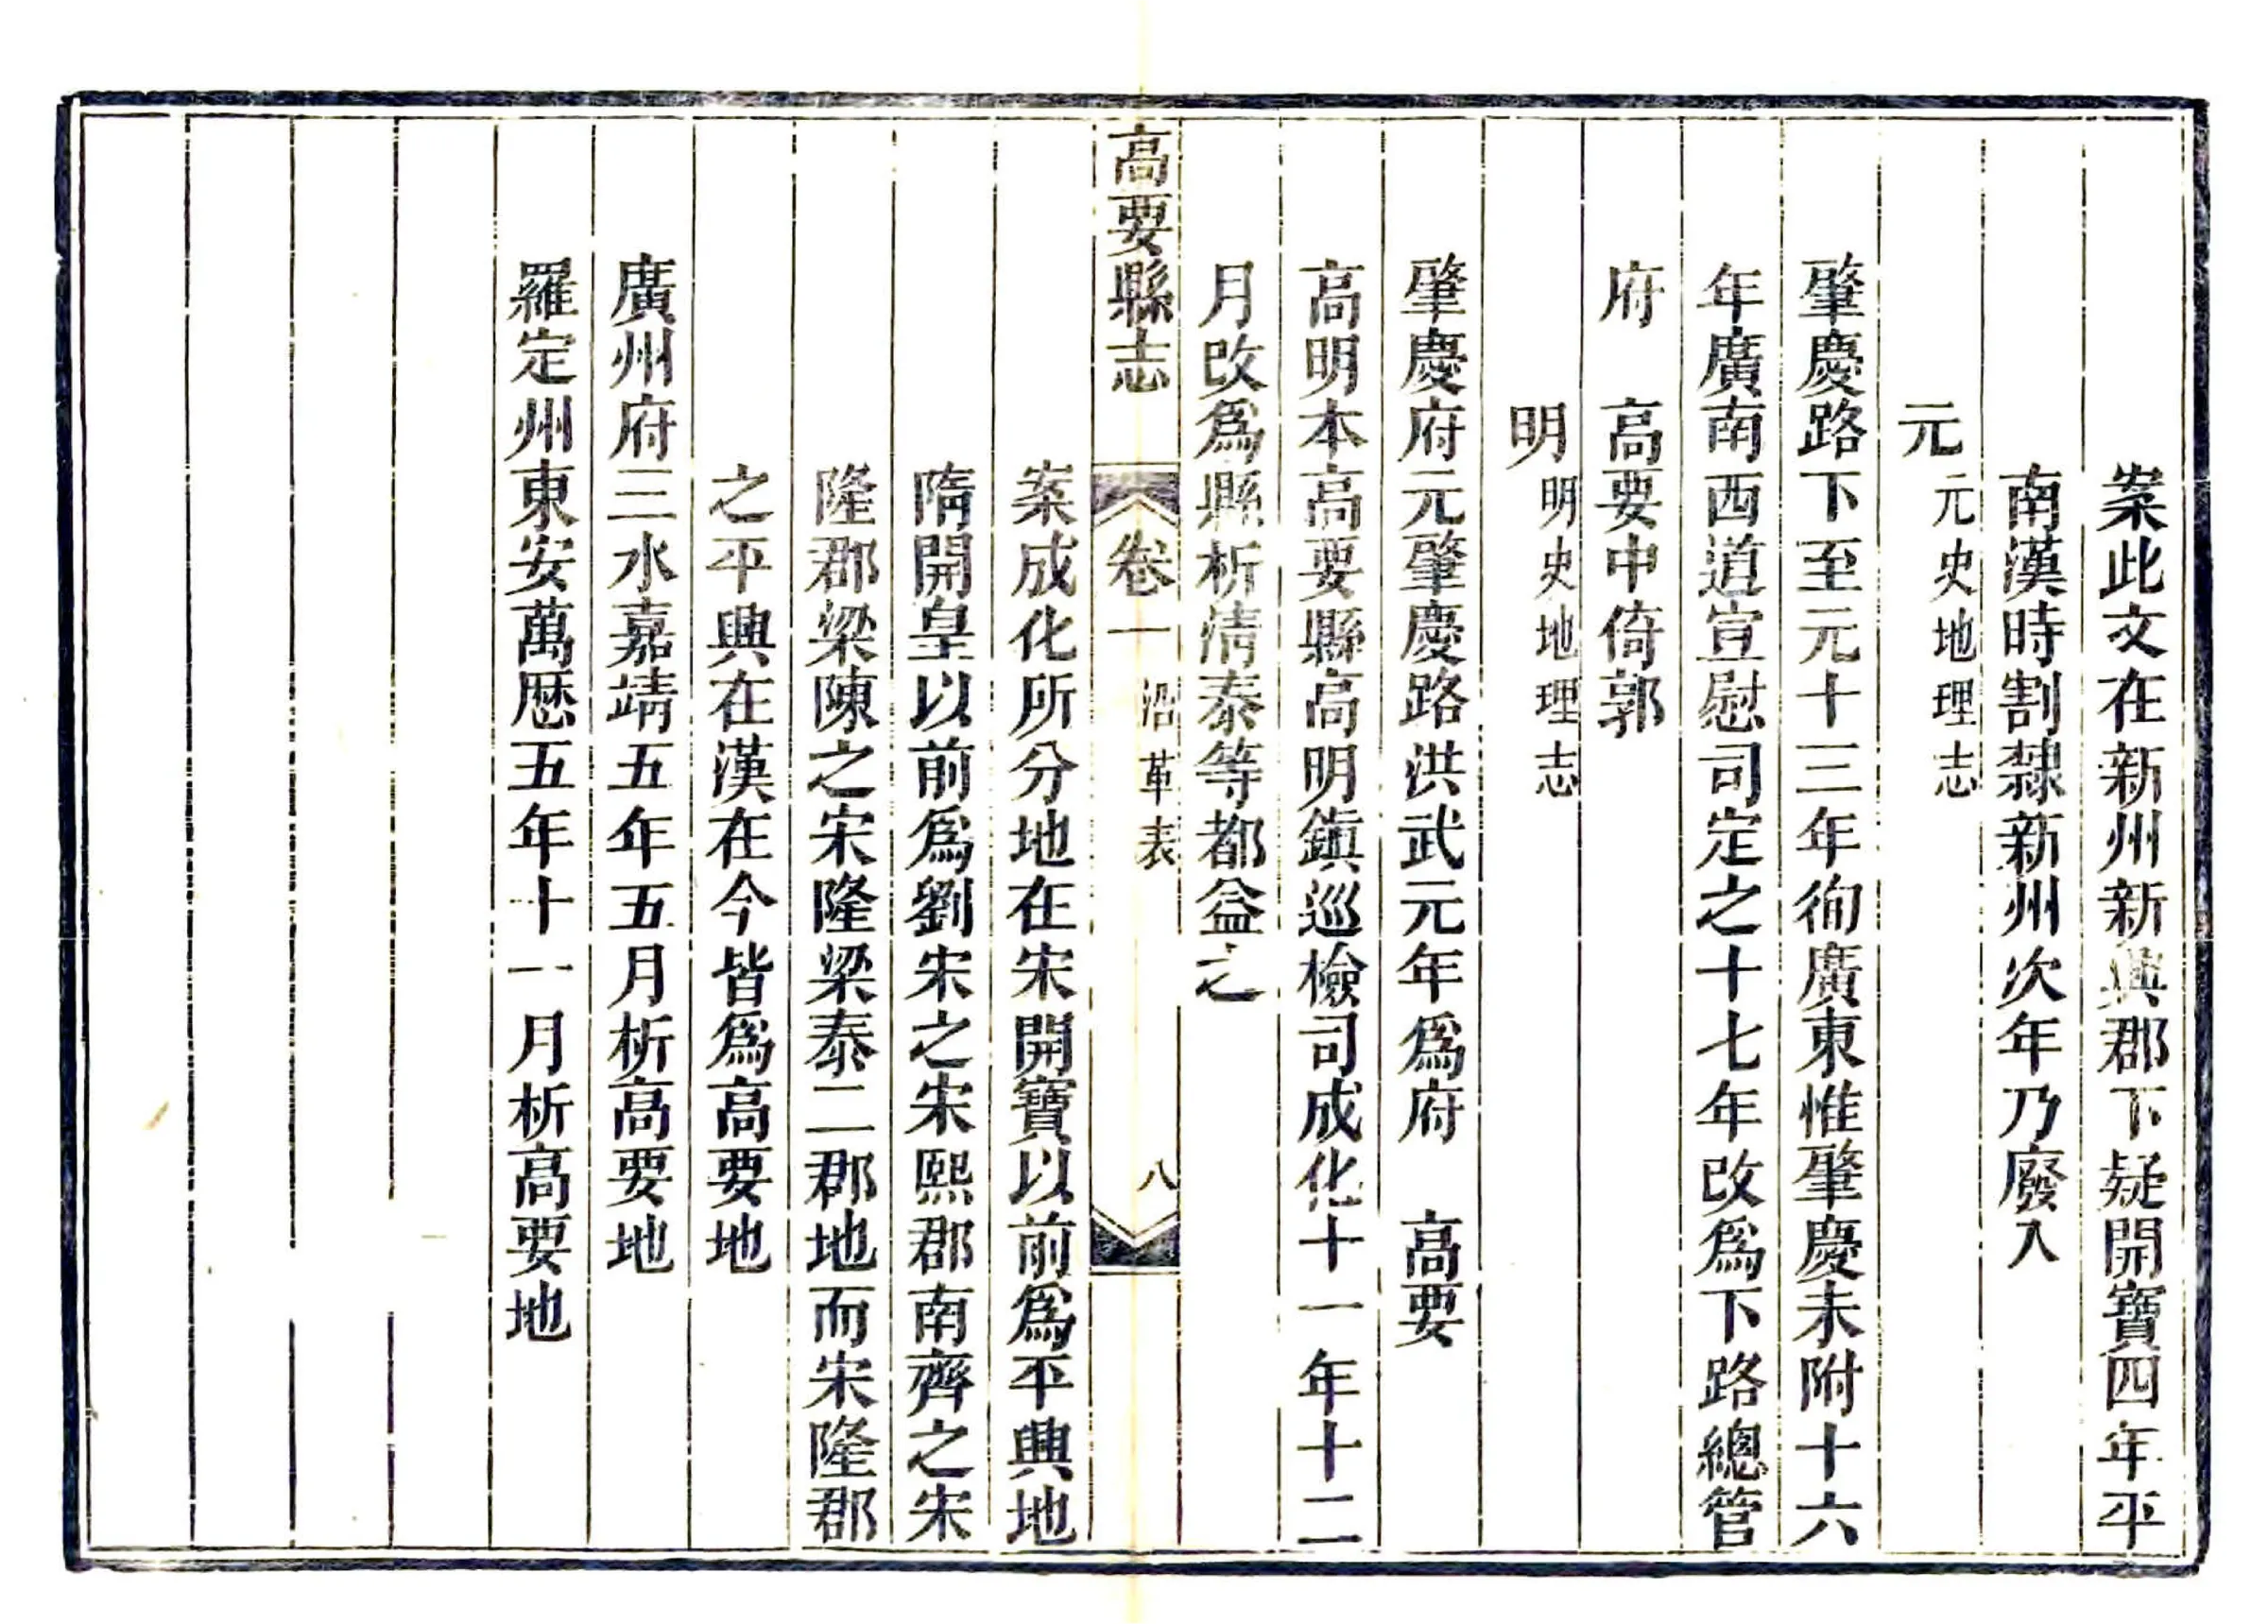 案此文在新州新興郡下疑開寶四年平
南漢時割隸新州次年乃廢入
元元史地理志
肇慶路下至元十三年徇廣東惟肇慶未附十六
年廣南西道宣慰司定之十七年改爲下路總管
府　高要中倚郭
明明史地理志
肇慶府元肇慶路洪武元年爲府　高要
高明本高要縣高明鎭巡檢司成化十一年十二
月改爲縣析清泰等都益之
高要縣志　卷一　沿革表　八
案成化所分地在宋開寶以前爲平興地
隋開皇以前爲劉宋之宋熙郡南齊之宋
隆郡梁陳之宋隆梁泰二郡地而宋隆郡
之平興在漢在今皆爲高要地
廣州府三水嘉靖五年五月析高要地
羅定州東安萬厯五年十一月析高要地